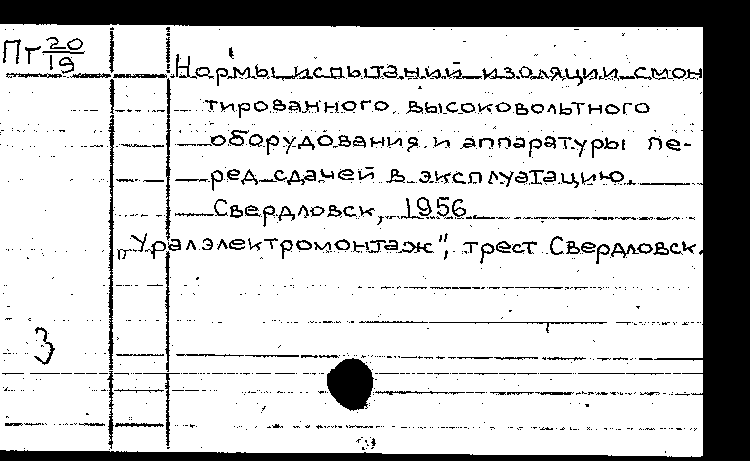 Пт 20/19
Нормы испытаний изоляции смон
тированного высоковольтного
оборудования и аппаратуры пе-
ред сдачей в эксплуатацию.
Свердловск, 1956.
„Уралэлектромонтаж", трест Свердловск.
3